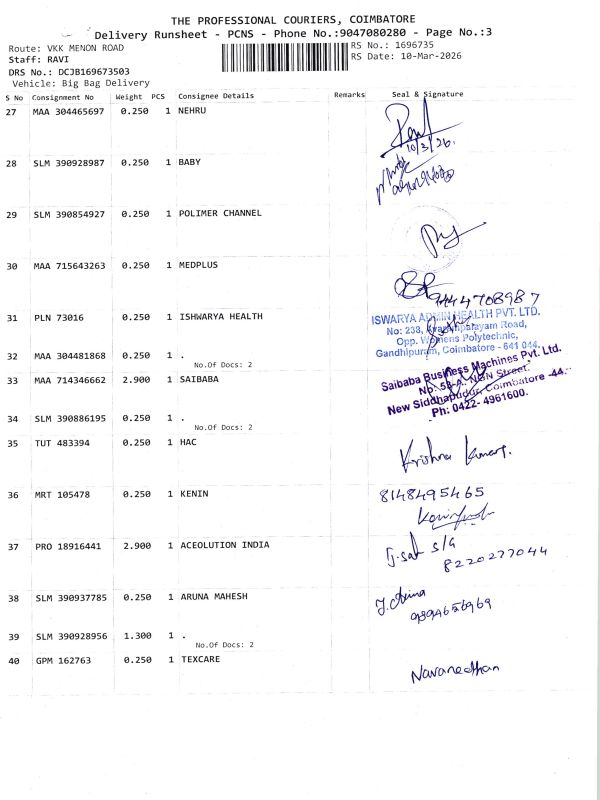 THE PROFESSIONAL COURIERS, COIMBATORE
Delivery Runsheet - PCNS - Phone No.:9047080280 - Page No.:3
Route: VKK MENON ROAD
RS No.: 1696735
Staff: RAVI
RS Date: 10-Mar-2026
DRS No.: DCJB169673503
Vehicle: Big Bag Delivery
S No Consignment No Weight PCS Consignee Details Remarks Seal & Signature
27 MAA 304465697 0.250 1 NEHRU
10/3/26
28 SLM 390928987 0.250 1 BABY
29 SLM 390854927 0.250 1 POLIMER CHANNEL
30 MAA 715643263 0.250 1 MEDPLUS
9444708987
31 PLN 73016 0.250 1 ISHWARYA HEALTH
ISWARYA ADMIN HEALTH PVT. LTD.
No: 238, Avarampalayam Road,
Opp. Womens Polytechnic,
Gandhipuram, Coimbatore - 641 044.
32 MAA 304481868 0.250 1 .
No.Of Docs: 2
33 MAA 714346662 2.900 1 SAIBABA
Saibaba Business Machines Pvt. Ltd.
No: 58-A, NGN Street,
New Siddhapudur, Coimbatore -44.
Ph: 0422- 4961600.
34 SLM 390886195 0.250 1 .
No.Of Docs: 2
35 TUT 483394 0.250 1 HAC
Krishna Kumar.
36 MRT 105478 0.250 1 KENIN
8148495465
37 PRO 18916441 2.900 1 ACEOLUTION INDIA
8220277044
38 SLM 390937785 0.250 1 ARUNA MAHESH
9894656969
39 SLM 390928956 1.300 1 .
No.Of Docs: 2
40 GPM 162763 0.250 1 TEXCARE
Navaneethan